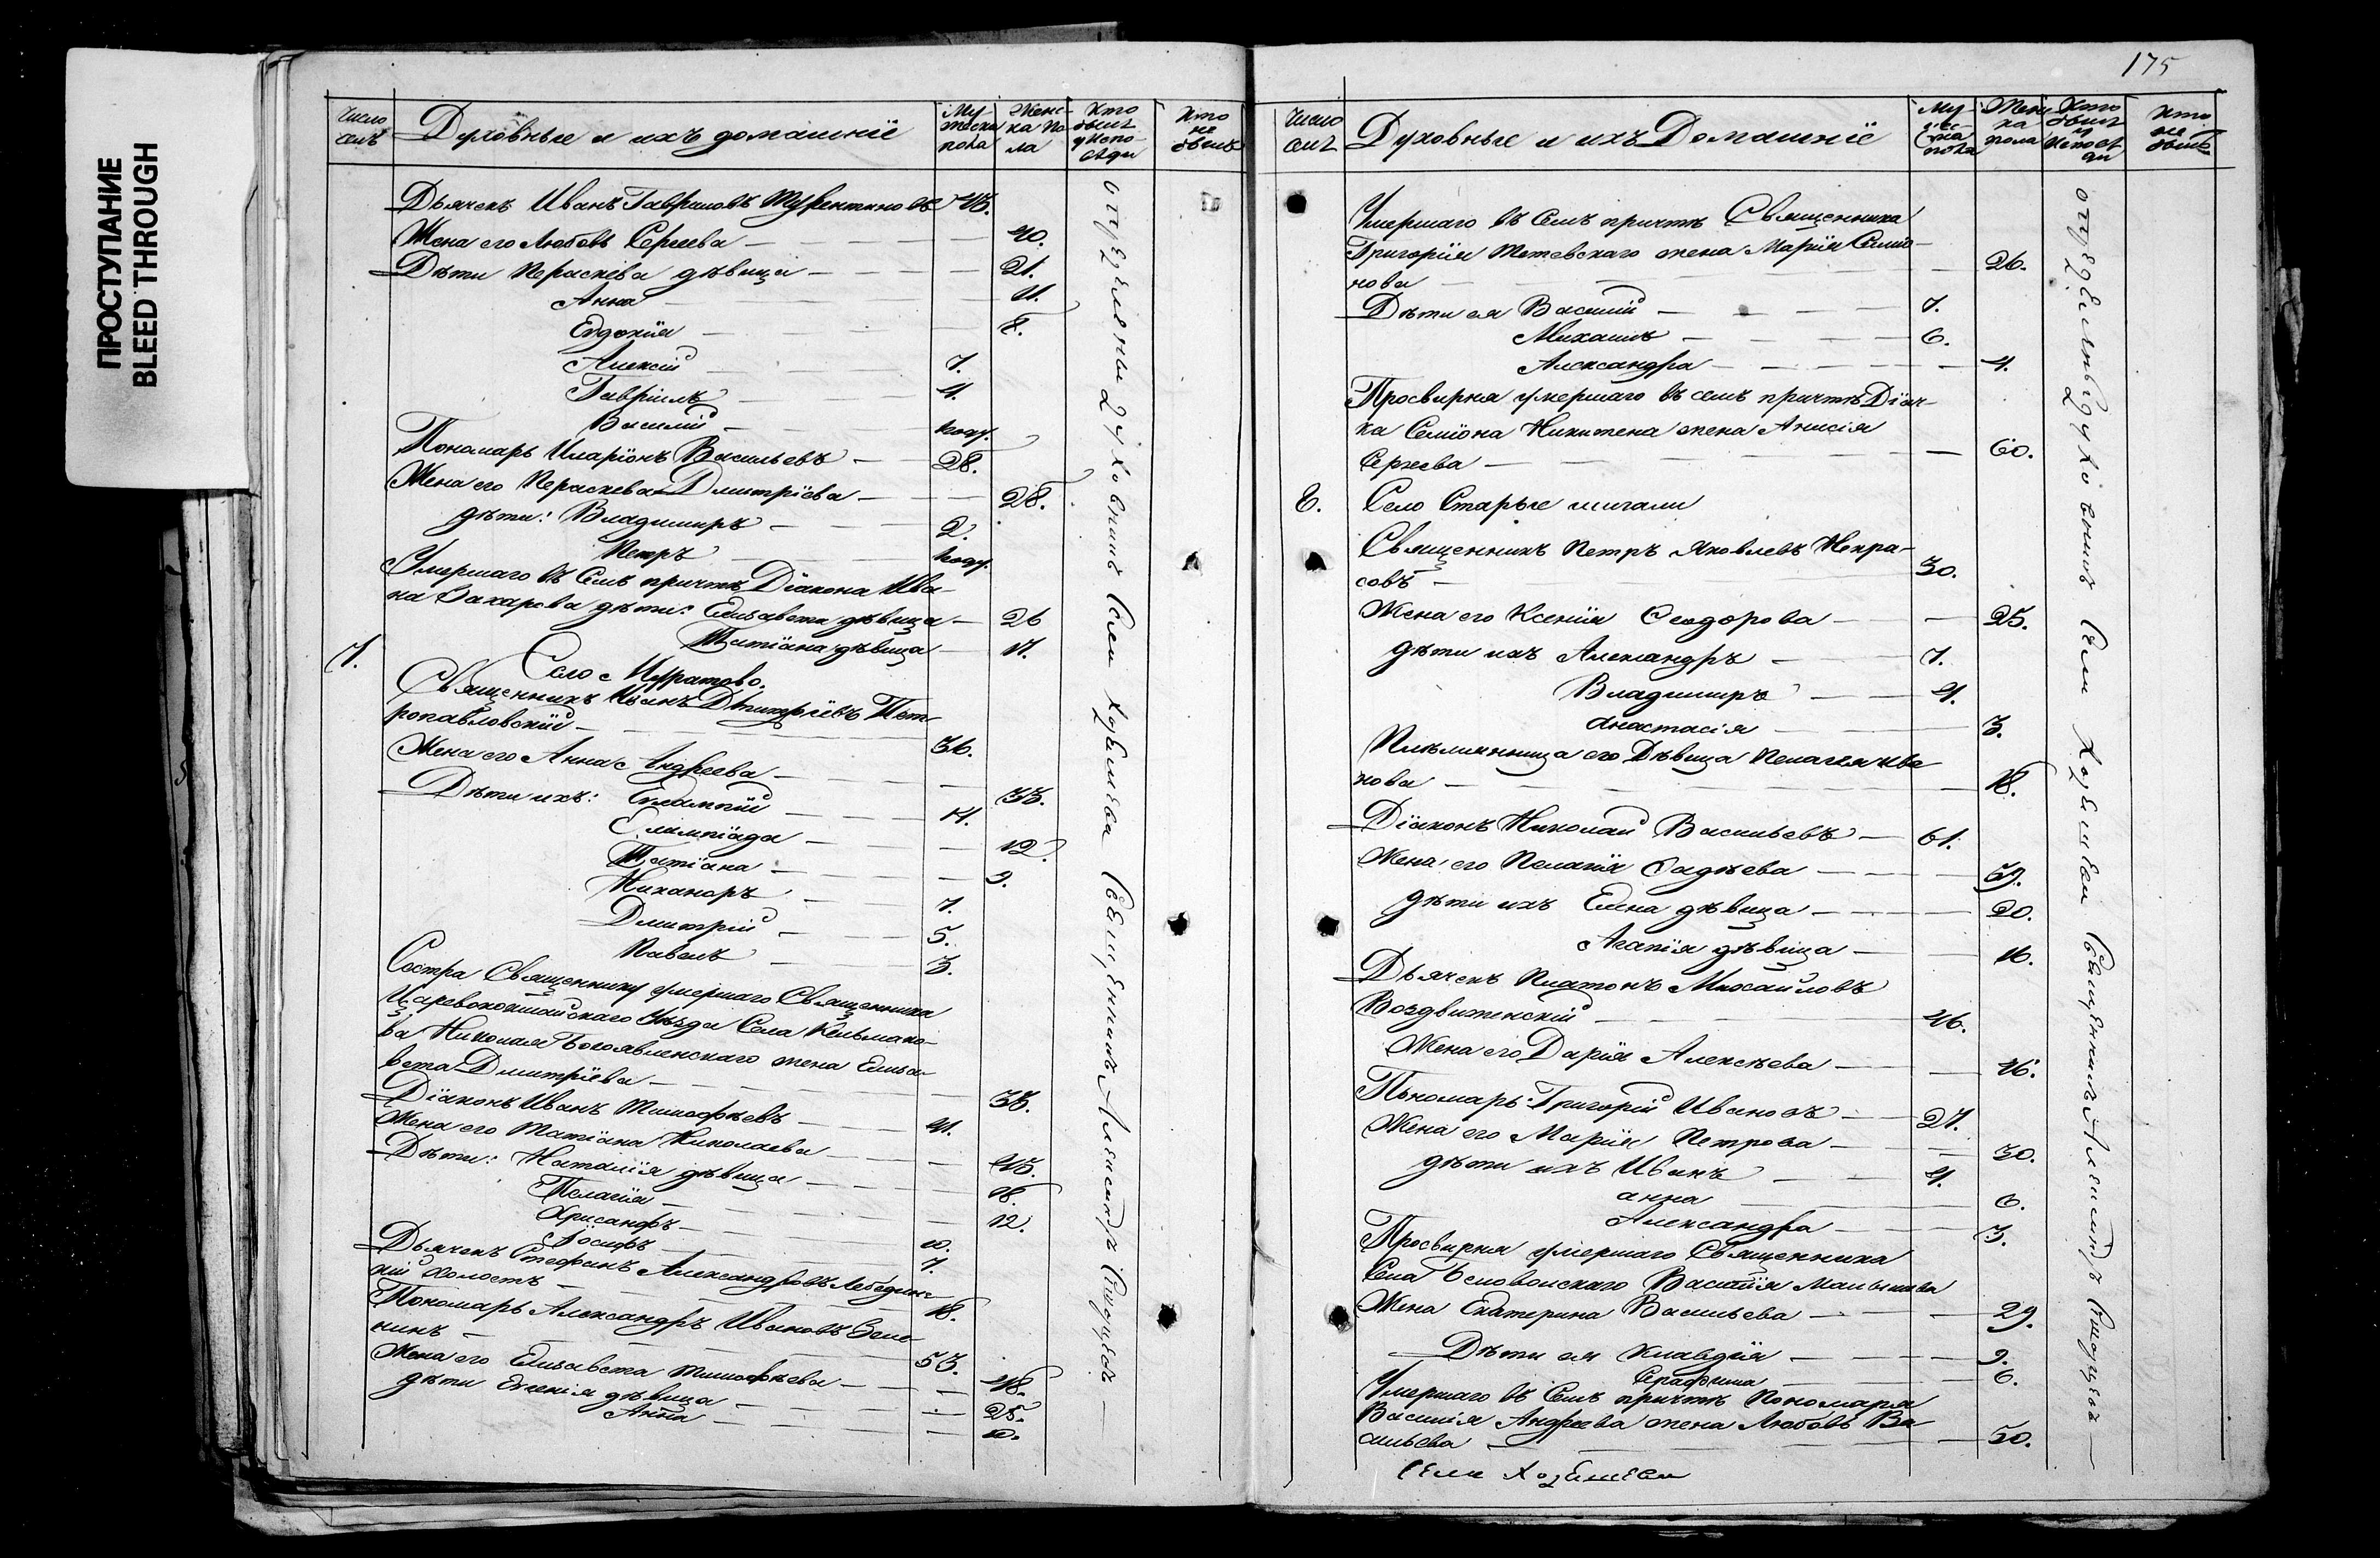 ПРОСТУПАНИЕ
BLEED THROUGH
Число
селъ
Духовные и ихъ домашніе
Му-
жеска
пола
Женс-
ка по-
ла
Кто
былъ
у испо-
веди
Кто
не
былъ
Дьячекъ Иванъ Гавриловъ 43.
Жена его Любовь Сергеева — 40.
Дѣти Пераскева дѣвица — 21.
Анна — 11.
Евдокія — 8.
Алексій — 7.
Гавріилъ — 4.
Василій — году.
Пономарь Иларіонъ Васильевъ — 28.
Жена его Пераскева Дмитріева — 28.
дѣти: Владимиръ — 2.
Петръ — году.
Умершаго въ семъ причтѣ Діакона Ива-
на Захарова дѣти: Елизавета дѣвица — 26
Татіана дѣвица — 17.
7. Село Муратово.
Священникъ Иванъ Дмитріевъ Пет-
ропавловскій — 36.
Жена его Анна Андреева — 33.
Дѣти ихъ: Евлампій — 14.
Олимпіада — 12.
Татіана — 9.
Никаноръ — 7.
Дмитрій — 5.
Павелъ — 3.
Сестра Священнику умершаго Священника
Царевококшайскаго Уѣзда Села Кельмако-
ва Николая Богоявленскаго жена Елиза-
вета Дмитріева — 38.
Діаконъ Иванъ Тимофѣевъ — 41.
Жена его Татіана Николаева — 43.
Дѣти: Наталія дѣвица — 18.
Пелагія — 12.
Хрисанфъ — 10.
Іосифъ — 7.
Дьячекъ Стефанъ Александровъ Лебединс-
кій холостъ — 18.
Пономарь Александръ Ивановъ
нинъ — 53.
Жена его Елизавета Тимофѣева — 48.
дѣти Евгенія дѣвица — 25.
Анна — 10.
Духовникъ Села Священникъ Александръ
175
Число
селъ
Духовные и ихъ Домашніе
Му-
жес-
ка
пола
Женс-
ка
пола
Кто
былъ
у
Исповѣ-
ди
Кто
не
былъ
Умершаго въ семъ причтѣ Священника
Григорія жена Марія Симіо-
нова — 26.
Дѣти ея Василій — 7.
Михаилъ — 6.
Александра — 4.
Просвирня умершаго въ семъ причтѣ Діач-
ка Семіона Никитена жена Анисія
Сергеева — 60.
8. Село Старые шигали
Священникъ Петръ Яковлевъ Некра-
совъ — 30.
Жена его Ксенія Феодорова — 25.
дѣти ихъ Александръ — 7.
Владимиръ — 4.
Анастасія — 3.
Племянница его Дѣвица Пелагея Ива-
нова — 18.
Діаконъ Николай Васильевъ — 61.
Жена его Пелагія Фадѣева — 59.
дѣти ихъ Елена дѣвица — 20.
Агапія дѣвица — 16.
Дьячекъ Платонъ Михайловъ
Воздвиженскій — 46.
Жена его Дарія Алексѣева — 46.
Пономарь: Григорій Ивановъ — 27.
Жена его Марія Петрова — 30.
дѣти ихъ Иванъ — 4.
анна — 6.
Александра — 3.
Просвирня умершаго Священника
Села Василія
Жена Екатерина Васильева — 29.
Дѣти ея Клавдія — 9.
Серафима — 6.
Умершаго въ семъ причтѣ Пономаря
Василія Андреева жена Любовь Ва-
сильева — 50.
Села